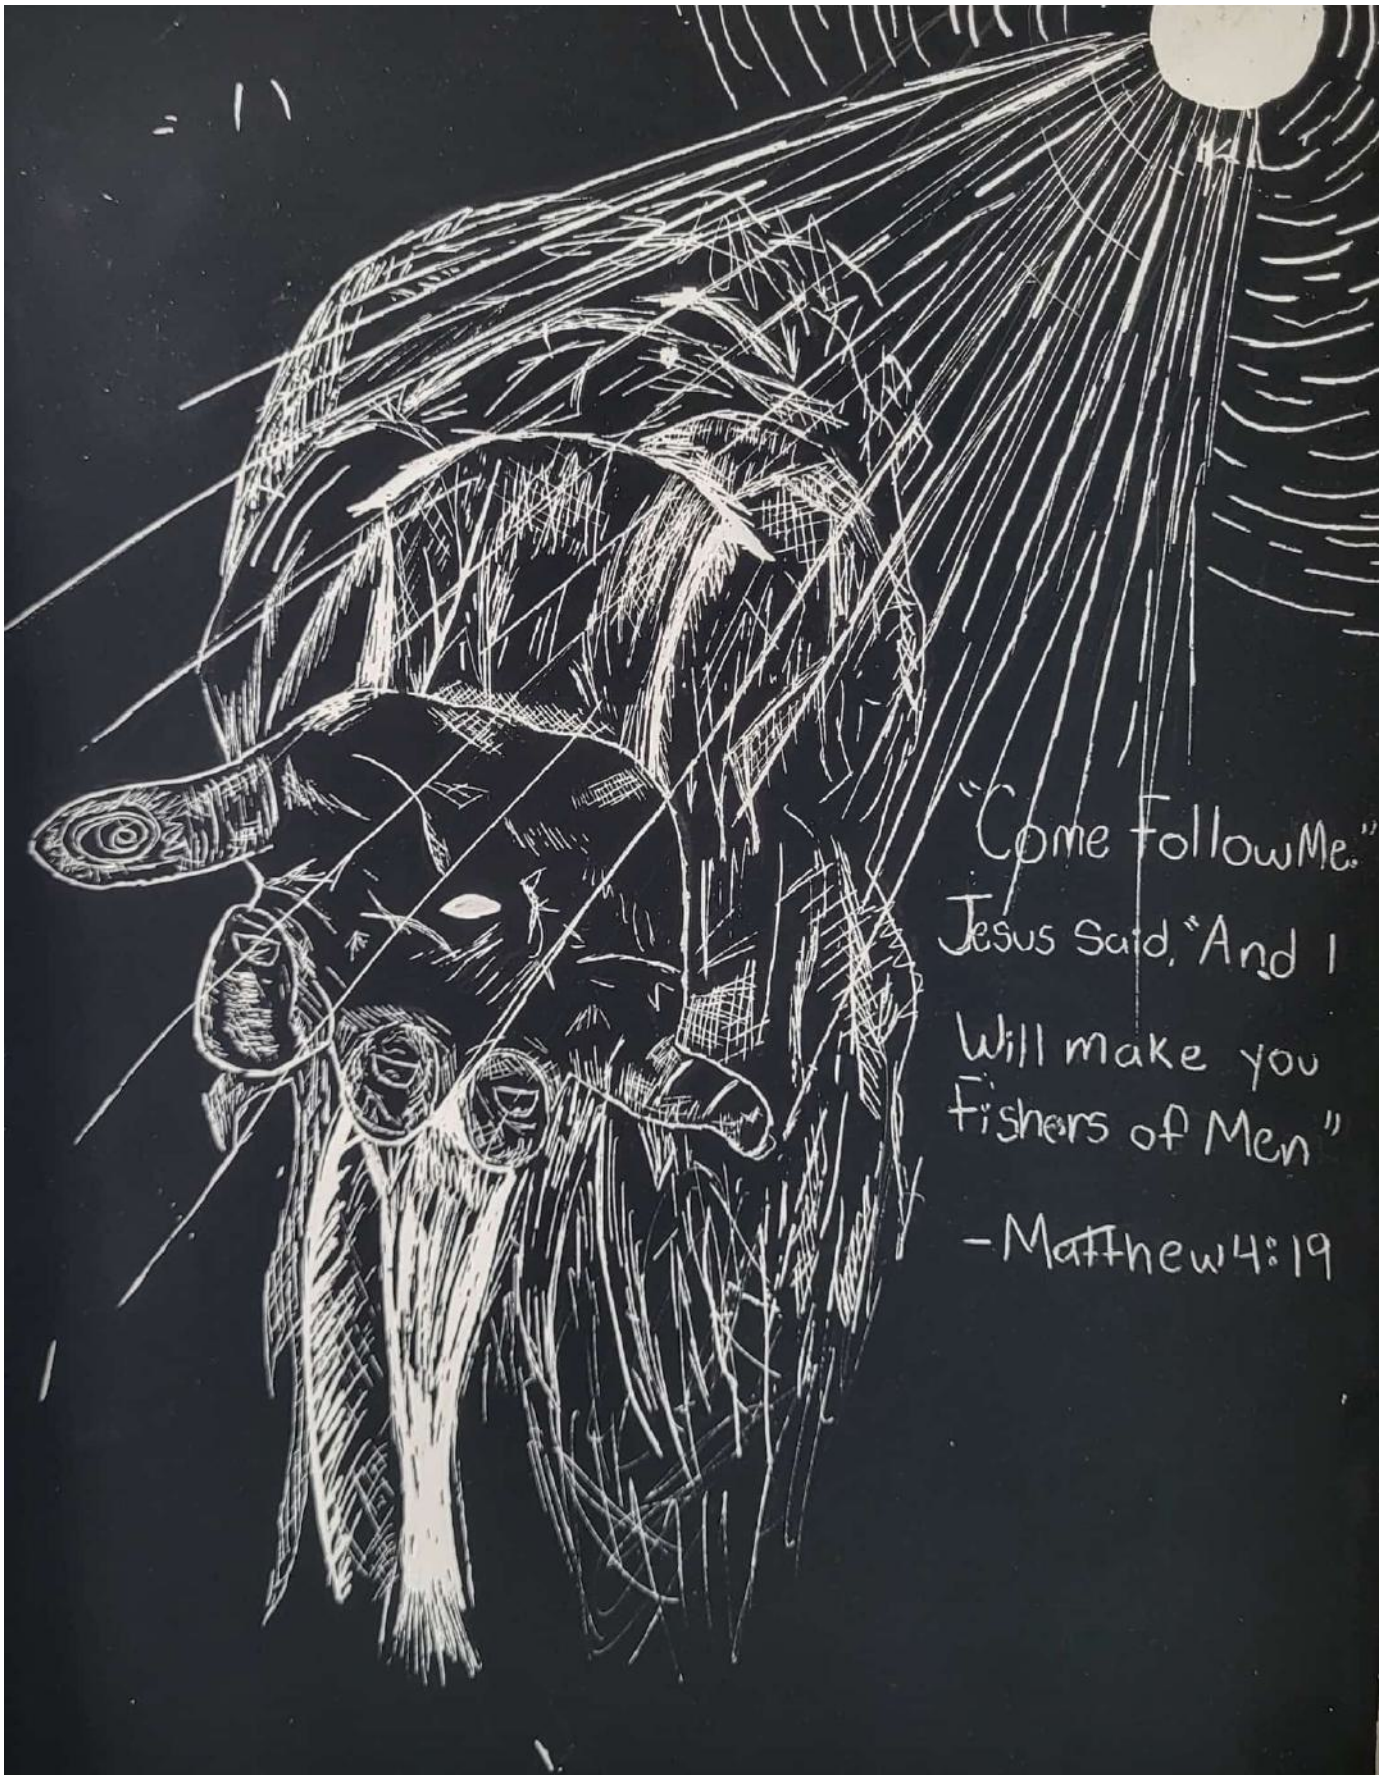 "Come Follow Me."
Jesus Said, "And I
Will make you
Fishers of Men"
-Matthew 4:19